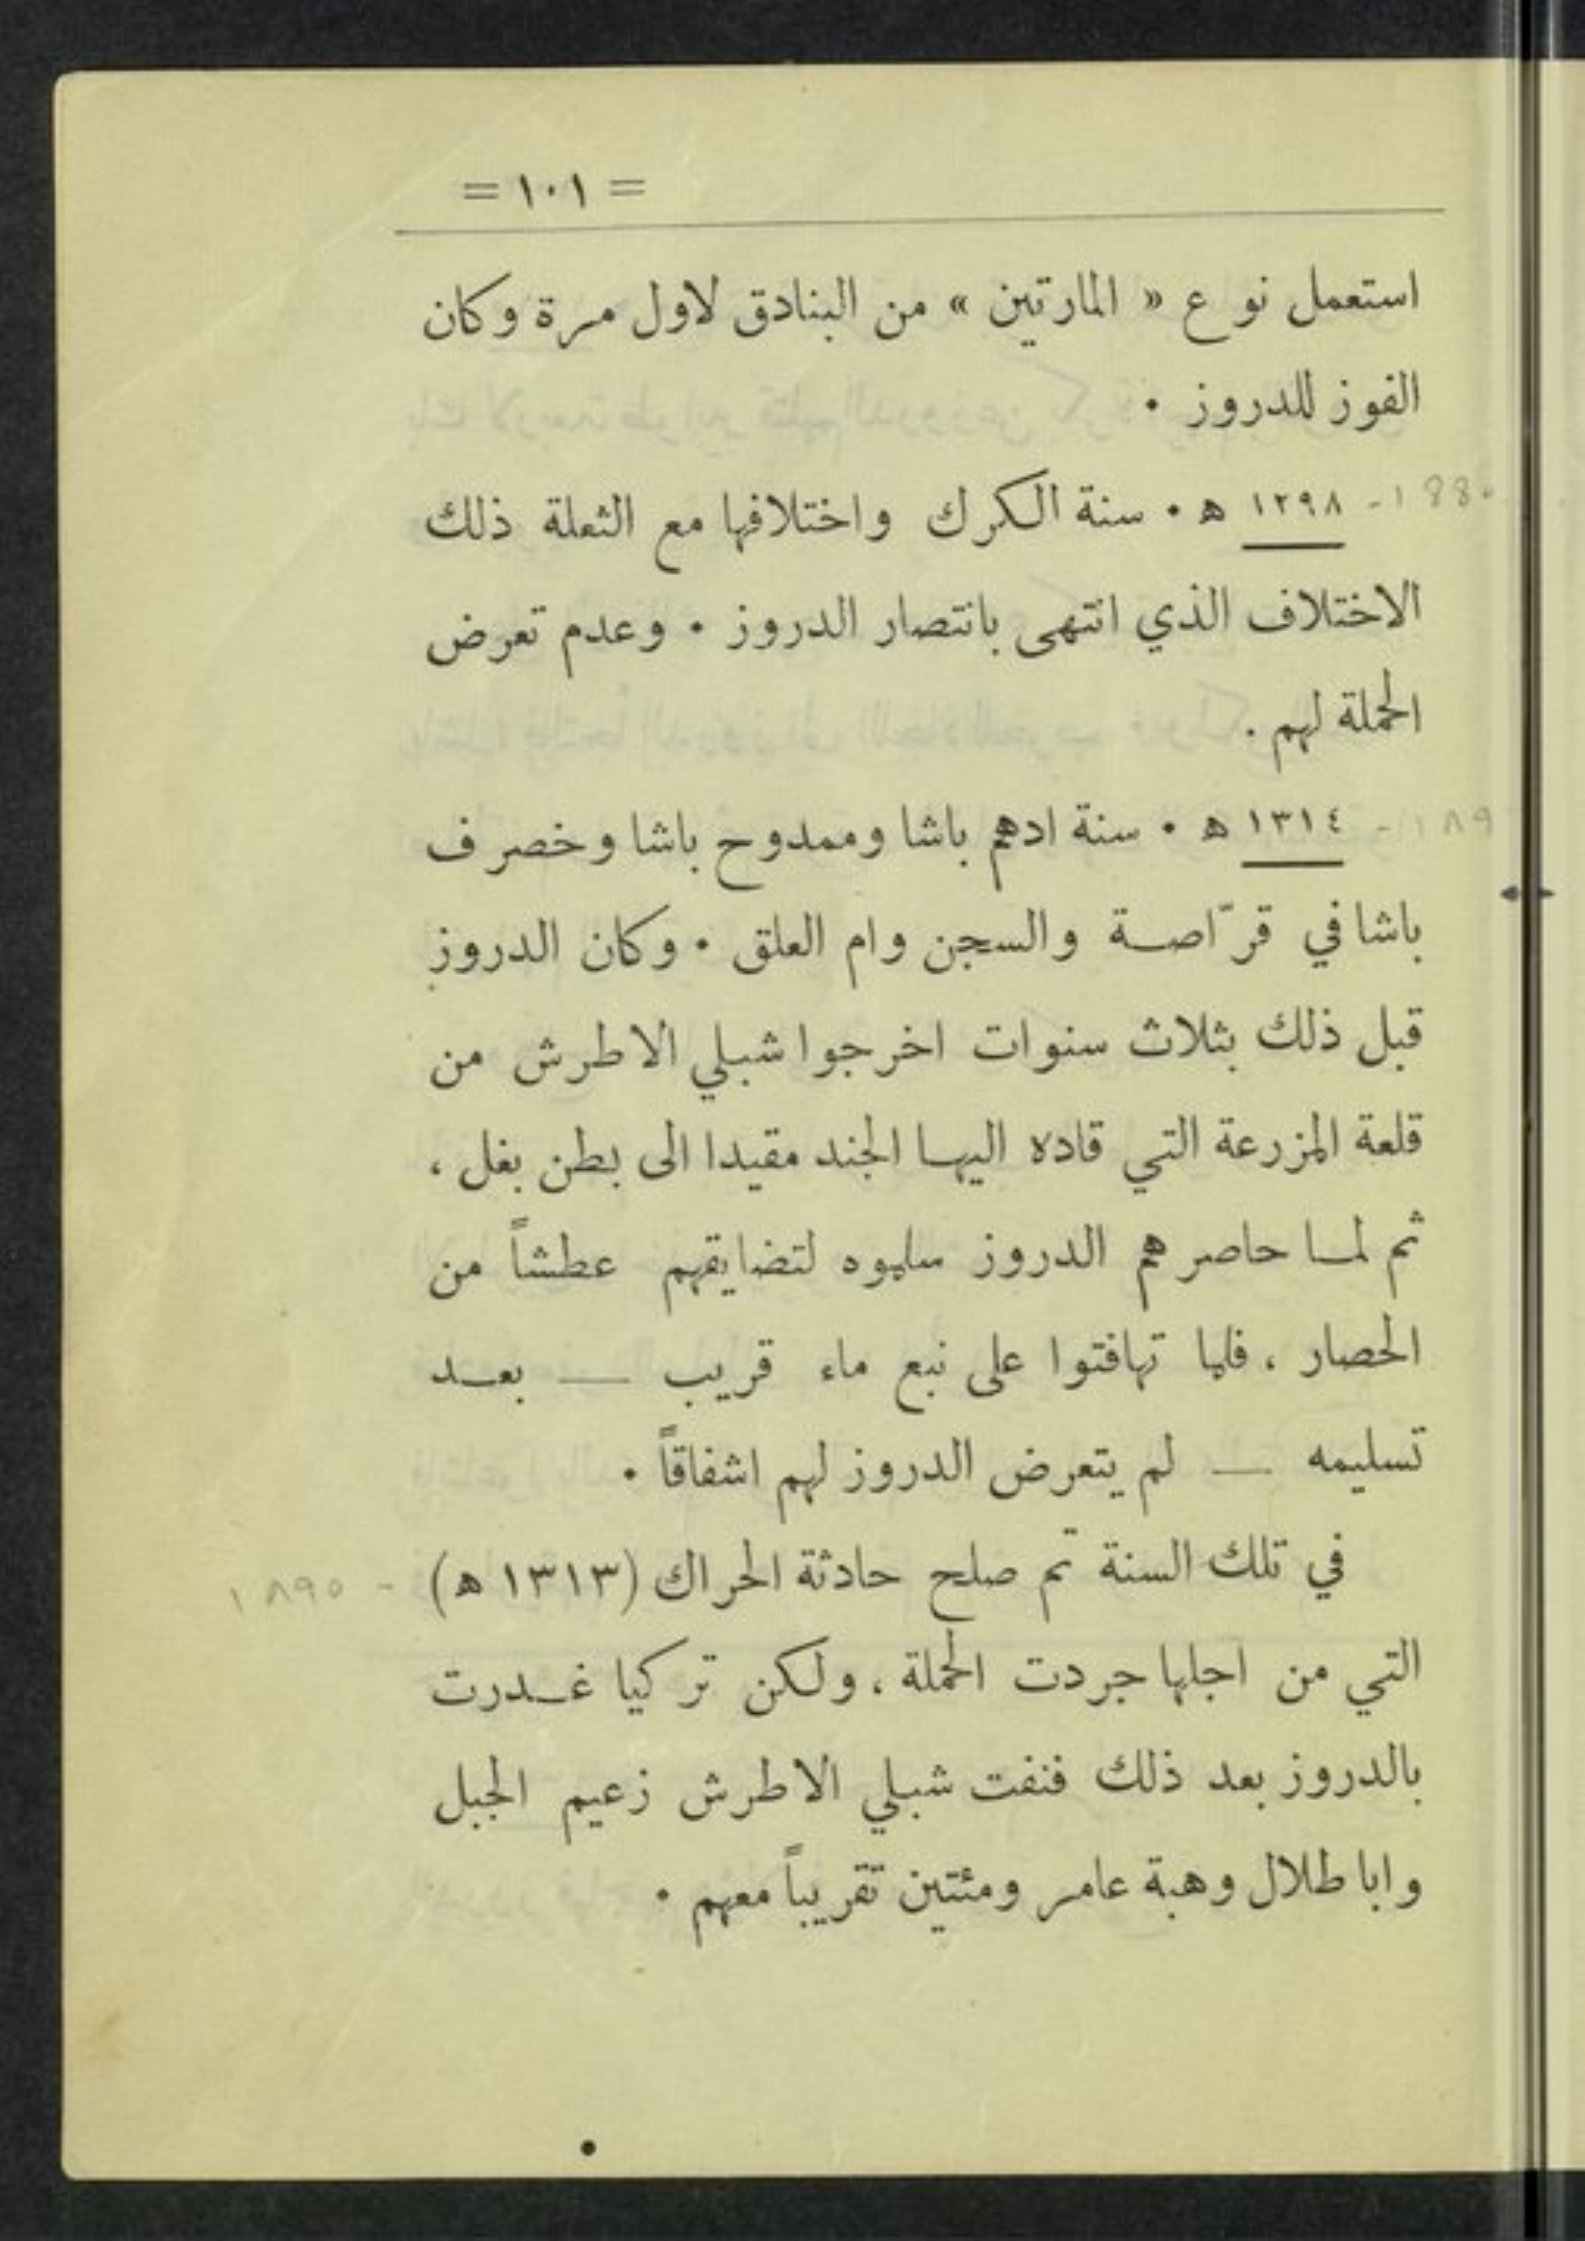 = ١٠١ =
استعمل نوع « المارتين » من البنادق لاول مرة وكان
الفوز للدروز ٠
١٢٩٨ ه ٠ سنة الكرك واختلافها مع الثعلة ذلك
الاختلاف الذي انتهى بانتصار الدروز ٠ وعدم تعرض
الحملة لهم .
١٣١٤ ه ٠ سنة ادهم باشا وممدوح باشا وخصرف
باشا في قرّاصة والسجن وام العلق ٠ وكان الدروز
قبل ذلك بثلاث سنوات اخرجوا شبلي الاطرش من
قلعة المزرعة التي قاده اليها الجند مقيدا الى بطن بغل ،
ثم لما حاصرهم الدروز سلموه لتضايقهم عطشاً من
الحصار ، فلما تهافتوا على نبع ماء قريب — بعد
تسليمه — لم يتعرض الدروز لهم اشفاقاً ٠
في تلك السنة تم صلح حادثة الحراك (١٣١٣ ه) - ١٨٩٥
التي من اجلها جردت الحملة ، ولكن تركيا غدرت
بالدروز بعد ذلك فنفت شبلي الاطرش زعيم الجبل
وابا طلال وهبة عامر ومئتين تقريباً معهم ٠